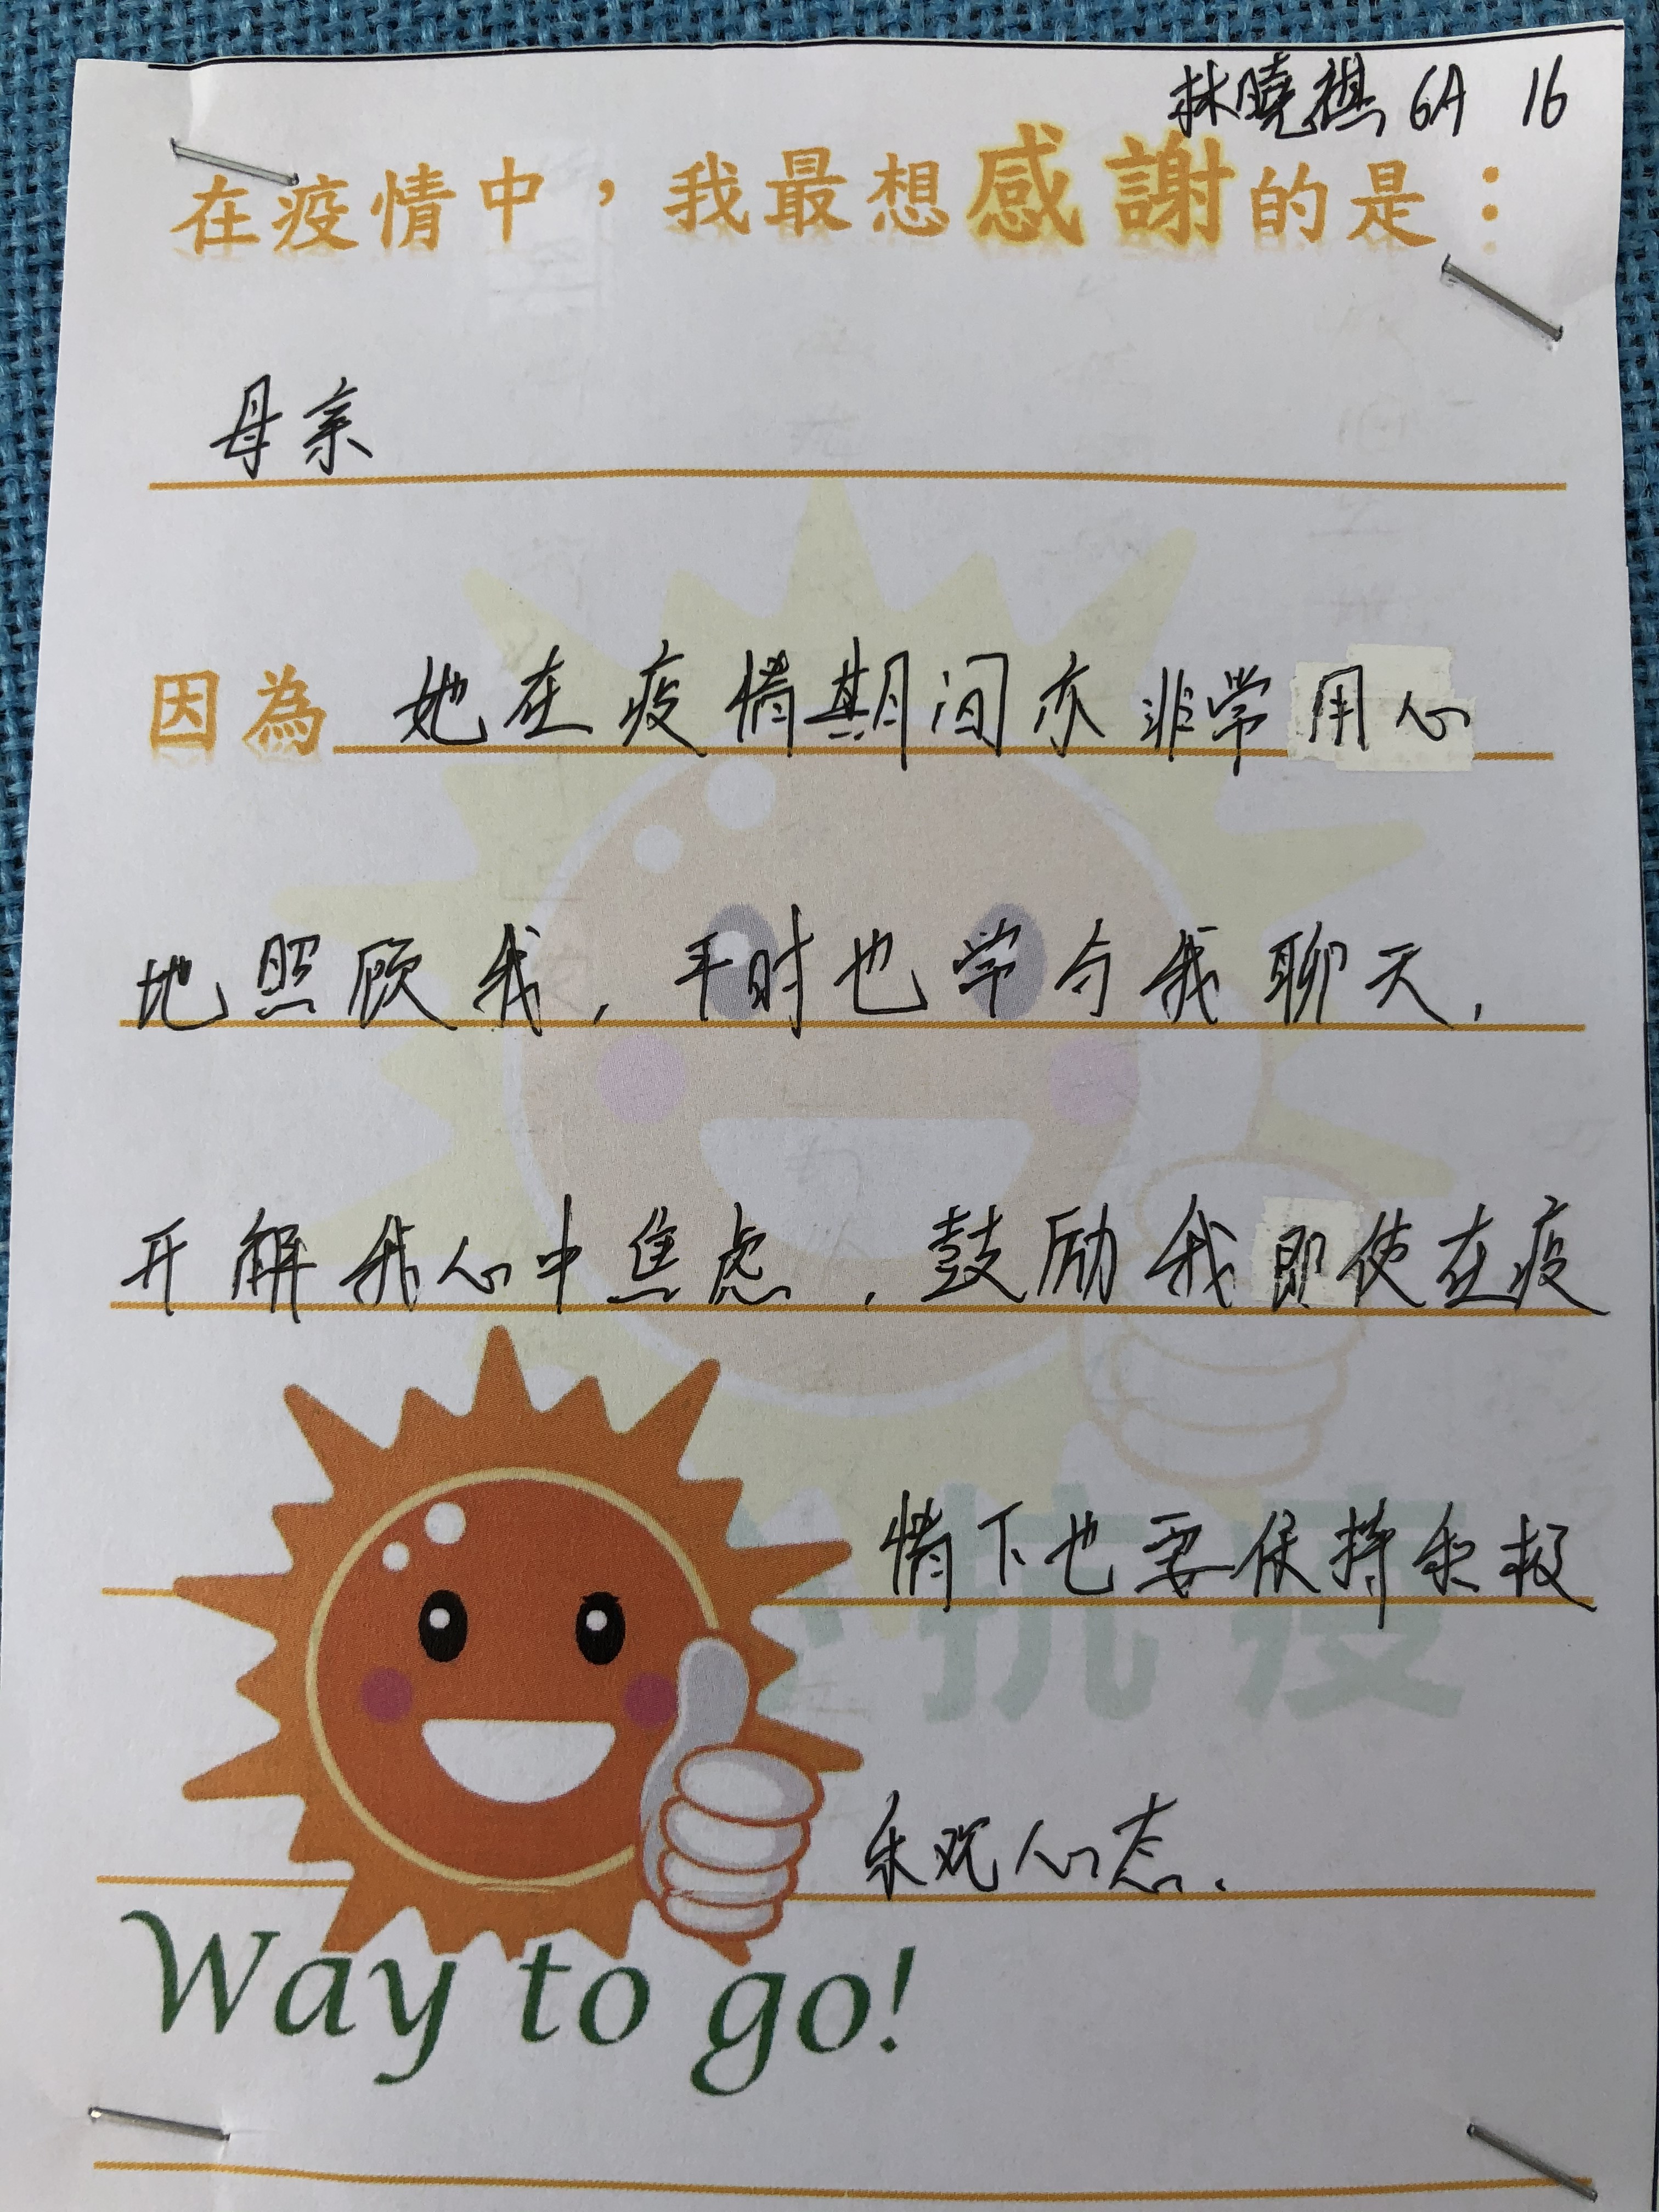 林曉祺 6A 16
在疫情中，我最想感謝的是：
母亲
因為 她在疫情期间亦非常用心
地照顾我，平时也常与我聊天，
开解我心中焦虑，鼓励我即使在疫
情下也要保持积极
乐观心态。
抗疫
Way to go!